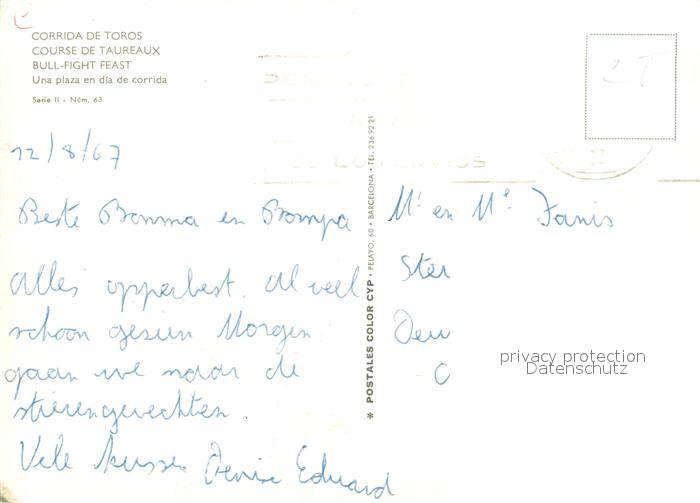 CORRIDA DE TOROS
COURSE DE TAUREAUX
BULL-FIGHT FEAST
Una plaza en día de corrida
Serie II - Núm. 63
12/8/67
Beste Bomma en Bompa
Alles opperbest. Al veel
schoon gezien Morgen
gaan we naar de
stierengevechten.
Vele kussen Denise Eduard
* POSTALES COLOR CYP • PELAYO, 60 • BARCELONA • TEL. 236 92 21
CT
Mr en Me Janis
Ster
privacy protection
Datenschutz